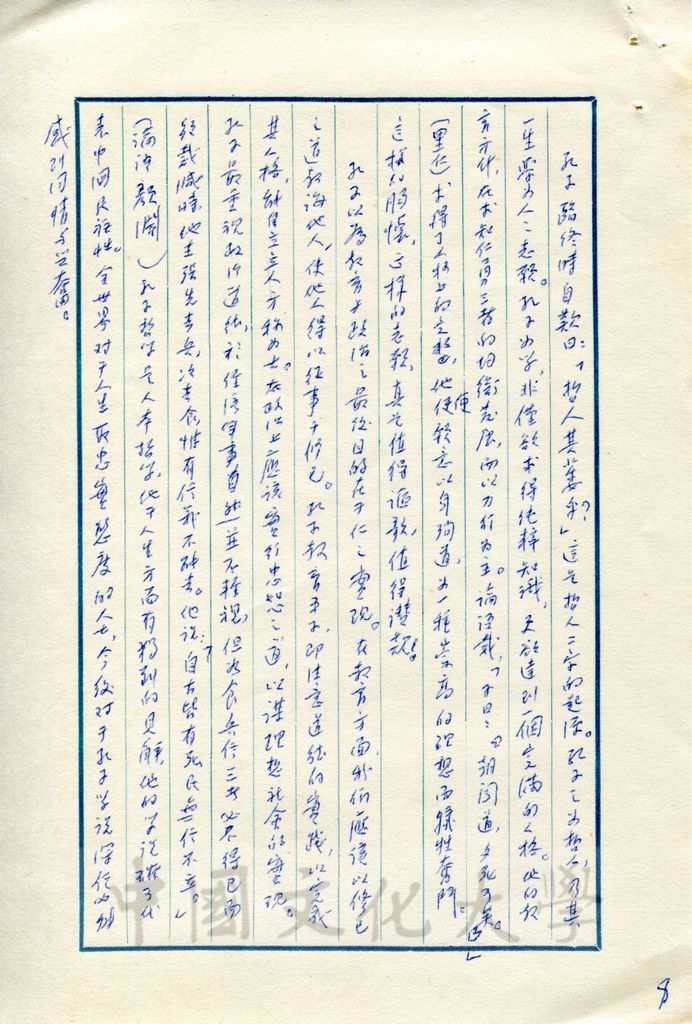 孔子臨終時自歎曰:「哲人其萎乎?」這是哲人二字的起源。孔子之為哲人,乃其
一生學為人之志願。孔子為學,非僅欲求得純粹知識,更欲達到一個完滿的人格。他的教
育方針,在求知仁勇三者的均衡發展,而以力行為主。論語載,「子曰:『朝聞道,夕死可矣。』」
(里仁)求得了人格上的完整,他便願意以身殉道,為一種崇高的理想而犧牲奮鬥。
這樣的胸懷,這樣的志願,真是值得謳歌,值得讚美。
孔子以為教育與政治之最後目的在于仁之實現。在教育方面,我們應該以修己
之道教誨他人,使他人得以從事于修己。孔子教育弟子,即注意道德的實踐,以完成
其人格,能自立立人方稱為士。在政治上應該實行忠恕之道,以謀理想社會的實現。
孔子最重視政治道德,於經濟軍事自然並不輕視,但如食兵信三者必不得已而
須裁減時,他主張先去兵,次去食,惟有信義不能去。他說:「自古皆有死,民無信不立。」
(論語顏淵)孔子哲學是人本哲學,他于人生方面有獨到的見解,他的學說確可代
表中國民族性。全世界对于人生取忠實態度的人士,今後对于孔子學說深信必能
感到同情與興奮。
8
中國文化大學